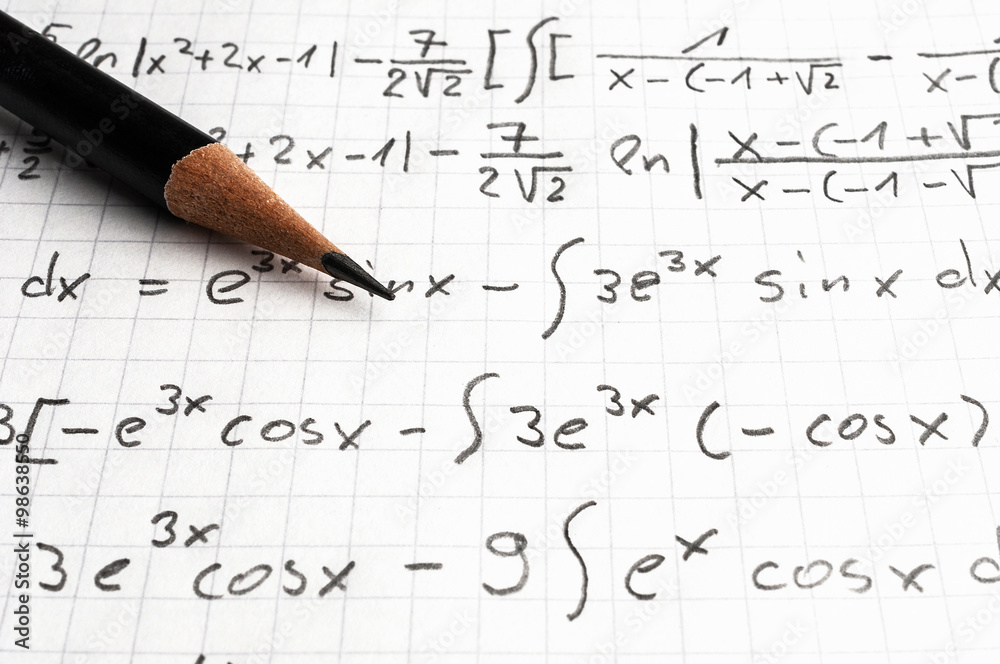 ln |x²+2x-1| - 7/2√2 [∫[ 1/x-(-1+√2 -
+ 2x-1| - 7/2√2 ln | x-(-1+√/x-(-1-√
dx = e³ˣ sinx - ∫ 3e³ˣ sin x dx
3[-e³ˣ cosx - ∫ 3e³ˣ (-cosx)
3e³ˣ cosx - 9 ∫ eˣ cosx d
Adobe Stock | #98638550